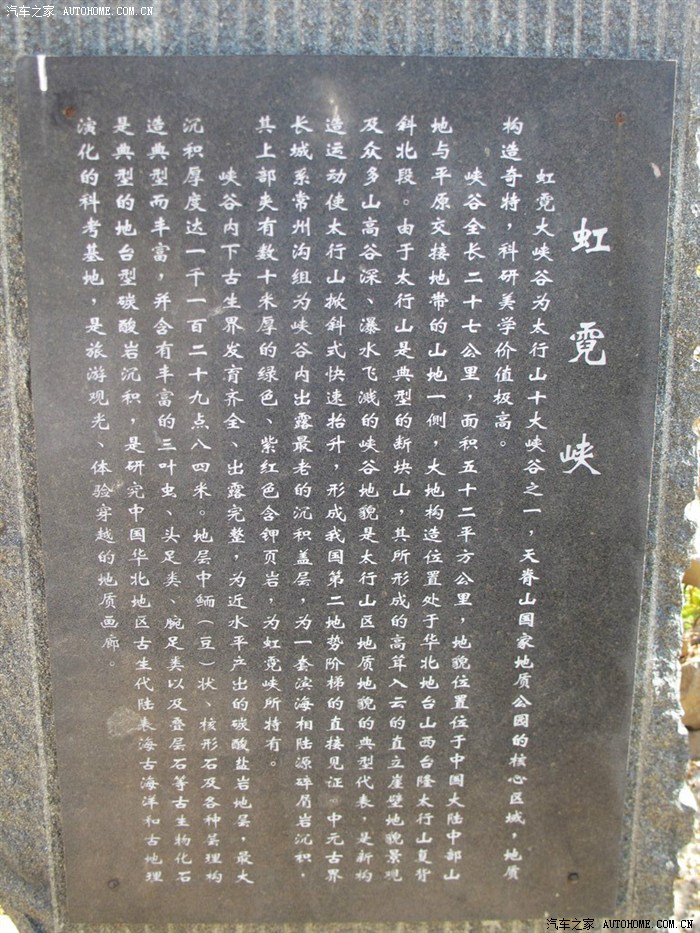 汽车之家 AUTOHOME.COM.CN
虹霓峡
虹霓大峡谷为太行山十大峡谷之一，天脊山国家地质公园的核心区域，地质
构造奇特，科研美学价值极高。
峡谷全长二十七公里，面积五十二平方公里，地貌位置位于中国大陆中部山
地与平原交接地带的山地一侧，大地构造位置处于华北地台山西台隆太行山复背
斜北段。由于太行山是典型的断块山，其所形成的高耸入云的直立崖壁地貌景观
及众多山高谷深、瀑水飞溅的峡谷地貌是太行山区地质地貌的典型代表，是新构
造运动使太行山掀斜式快速抬升，形成我国第二地势阶梯的直接见证。中元古界
长城系常州沟组为峡谷内出露最老的沉积盖层，为一套滨海相陆源碎屑岩沉积，
其上部夹有数十米厚的绿色、紫红色含钾页岩，为虹霓峡所特有。
峡谷内下古生界发育齐全、出露完整，为近水平产出的碳酸盐岩地层，最大
沉积厚度达一千一百二十九点八四米。地层中鲕（豆）状、核形石及各种层理构
造典型而丰富，并含有丰富的三叶虫、头足类、腕足类以及叠层石等古生物化石
是典型的地台型碳酸岩沉积，是研究中国华北地区古生代陆表海古海洋和古地理
演化的科考基地，是旅游观光、体验穿越的地质画廊。
汽车之家 AUTOHOME.COM.CN